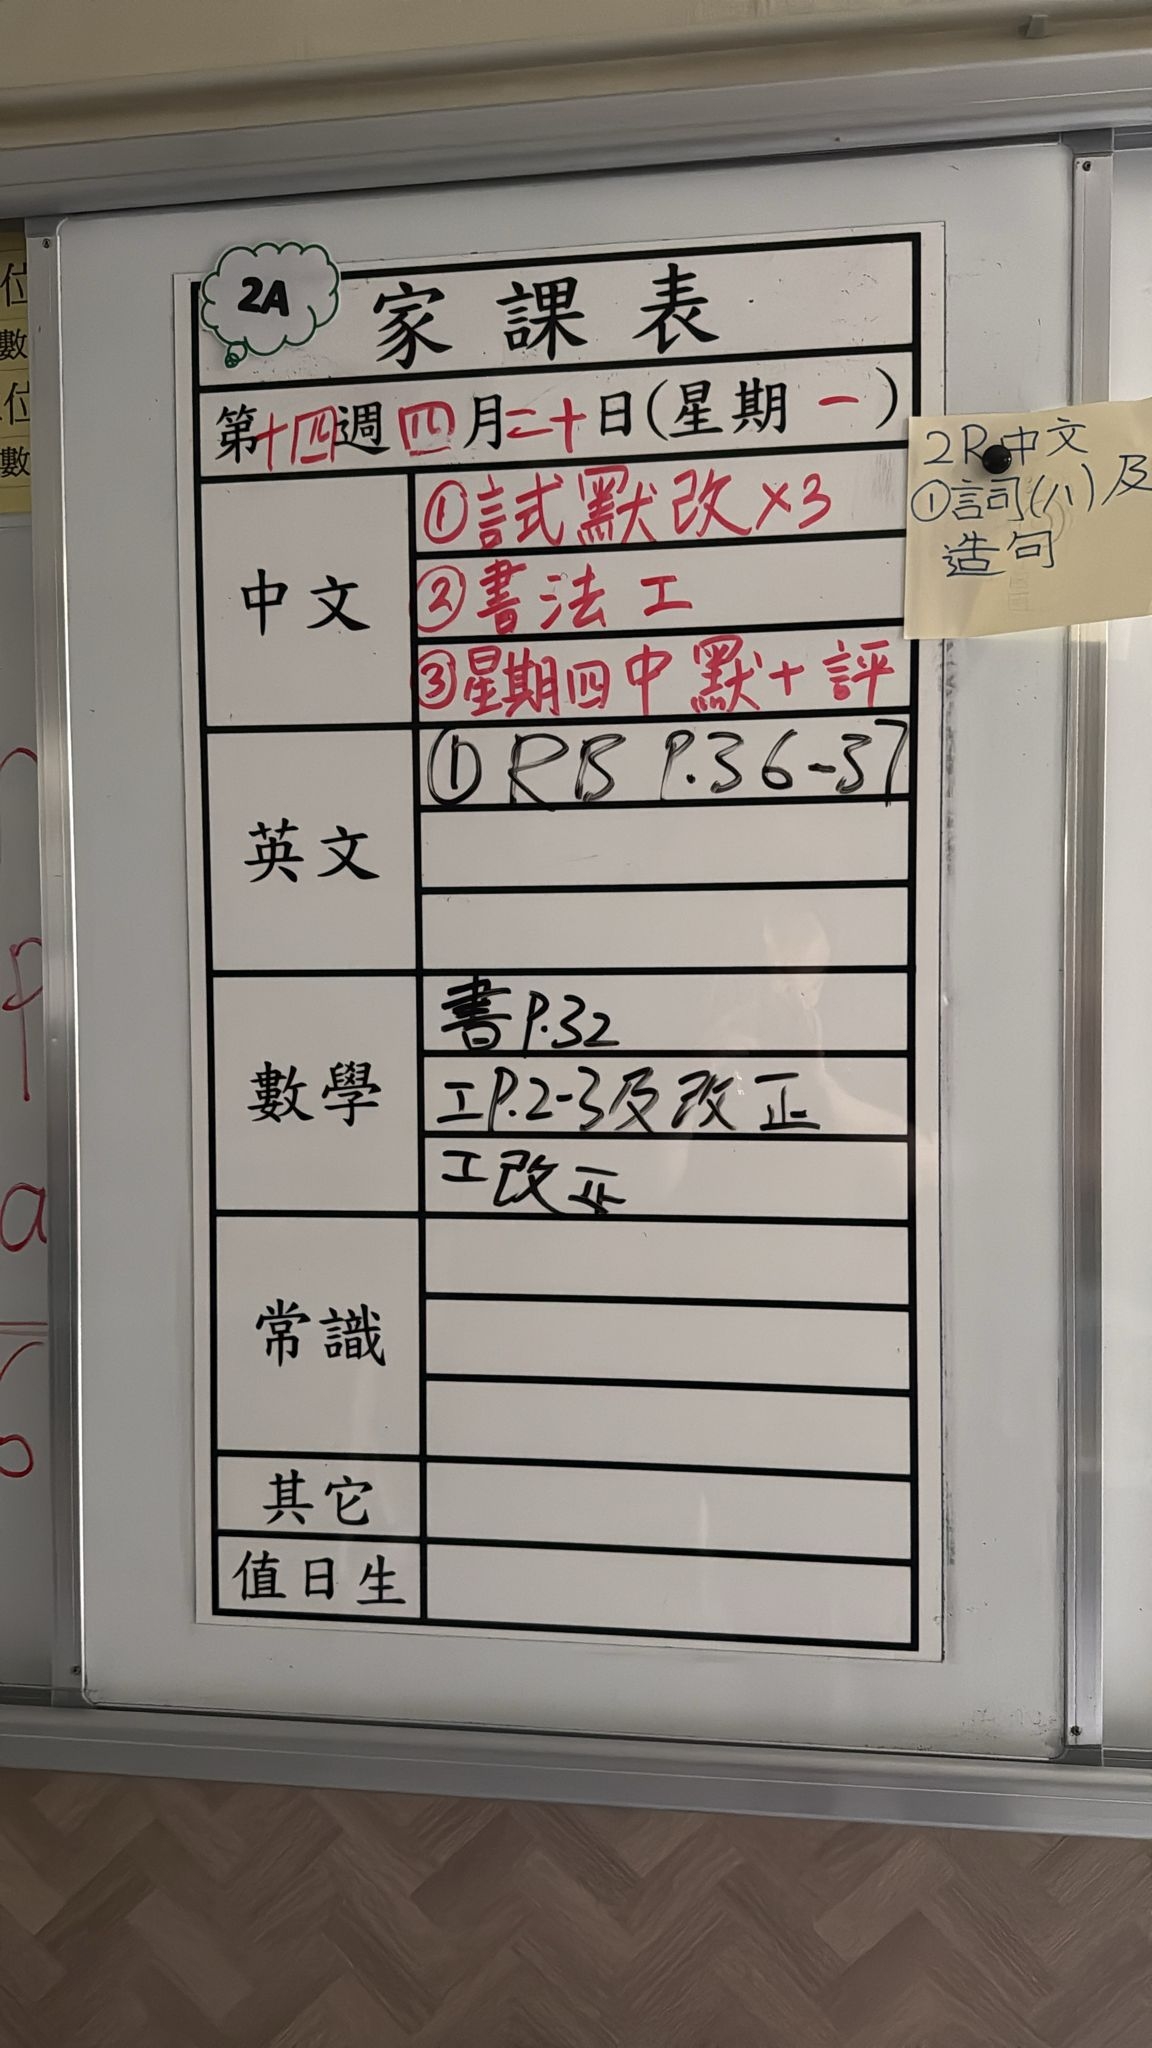 2A
家課表
第十四週四月二十日(星期一)
中文
①試默改×3
②書法工
③星期四中默+評
2R中文
①詞(八)及
造句
英文
①RB P.36-37
數學
書P.32
工P.2-3及改正
工改正
常識
其它
值日生
位
數
位
數
p
a